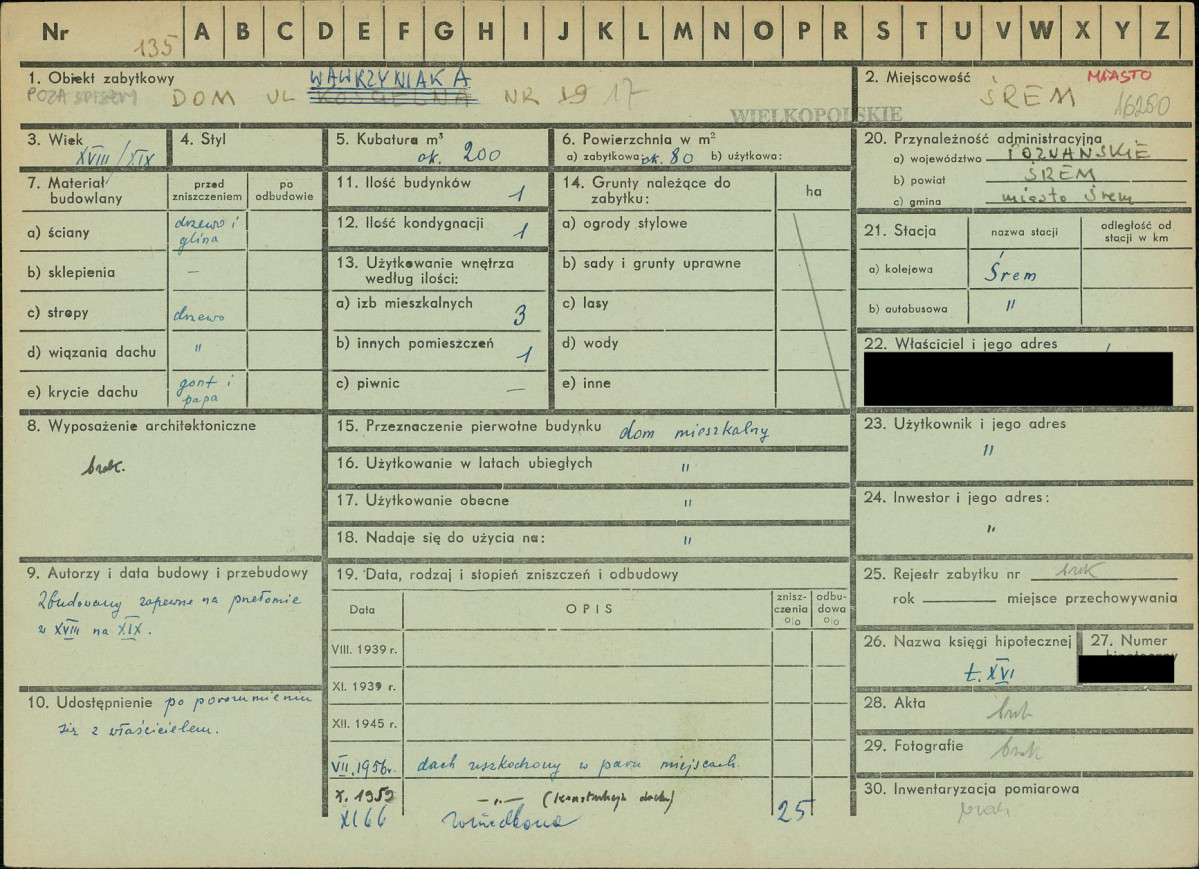 Nr 135 A B C D E F G H I J K L M N O P R S T U V W X Y Z
1. Obiekt zabytkowy
WAWRZYNIAKA
POZA SPISEM DOM UL KOŚCIELNA NR 19 17
WIELKOPOLSKIE
2. Miejscowość MIASTO
ŚREM 16250
3. Wiek
XVIII/XIX
4. Styl
5. Kubatura m³
ok. 200
6. Powierzchnia w m²
a) zabytkowa: ok. 80 b) użytkowa:
20. Przynależność administracyjna
a) województwo POZNAŃSKIE
b) powiat ŚREM
c) gmina miasto Śrem
7. Materiał budowlany
przed zniszczeniem
po odbudowie
a) ściany drzewo i glina
b) sklepienia —
c) stropy drzewo
d) wiązania dachu "
e) krycie dachu gont i papa
11. Ilość budynków 1
12. Ilość kondygnacji 1
13. Użytkowanie wnętrza według ilości:
a) izb mieszkalnych 3
b) innych pomieszczeń 1
c) piwnic —
14. Grunty należące do zabytku:
ha
a) ogrody stylowe
b) sady i grunty uprawne
c) lasy
d) wody
e) inne
21. Stacja
nazwa stacji
odległość od stacji w km
a) kolejowa Śrem
b) autobusowa "
22. Właściciel i jego adres
8. Wyposażenie architektoniczne
brak.
15. Przeznaczenie pierwotne budynku dom mieszkalny
16. Użytkowanie w latach ubiegłych "
17. Użytkowanie obecne "
18. Nadaje się do użycia na: "
23. Użytkownik i jego adres
"
24. Inwestor i jego adres:
"
9. Autorzy i data budowy i przebudowy
Zbudowany zapewne na przełomie
w XVIII na XIX.
10. Udostępnienie po porozumieniu
się z właścicielem.
19. Data, rodzaj i stopień zniszczeń i odbudowy
Data
OPIS
znisz-czenia %
odbu-dowa %
VIII. 1939 r.
XI. 1939 r.
XII. 1945 r.
VII. 1956 r. dach uszkodzony w paru miejscach.
X. 1959 —„— (konstrukcja dachu)
XI 66 25
25. Rejestr zabytku nr brak
rok miejsce przechowywania
26. Nazwa księgi hipotecznej
t. XVI
27. Numer
28. Akta brak
29. Fotografie brak
30. Inwentaryzacja pomiarowa
brak